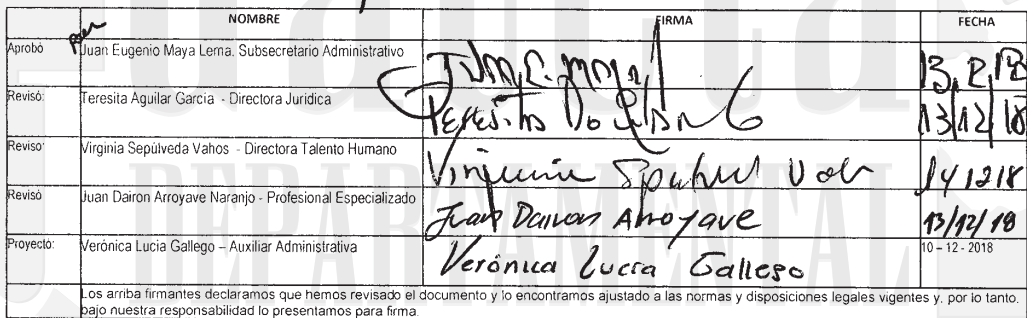 NOMBRE FIRMA FECHA
Aprobó Juan Eugenio Maya Lema. Subsecretario Administrativo 13.12.18
Revisó: Teresita Aguilar García - Directora Jurídica Teresita Aguilar G 13/12/18
Revisó: Virginia Sepúlveda Vahos - Directora Talento Humano Virginia 141218
Revisó Juan Dairon Arroyave Naranjo - Profesional Especializado Juan Dairon Arroyave 13/12/18
Proyectó: Verónica Lucia Gallego – Auxiliar Administrativa Verónica Lucia Gallego 10 – 12 - 2018
Los arriba firmantes declaramos que hemos revisado el documento y lo encontramos ajustado a las normas y disposiciones legales vigentes y, por lo tanto,
bajo nuestra responsabilidad lo presentamos para firma.
DEPARTAMENTAL